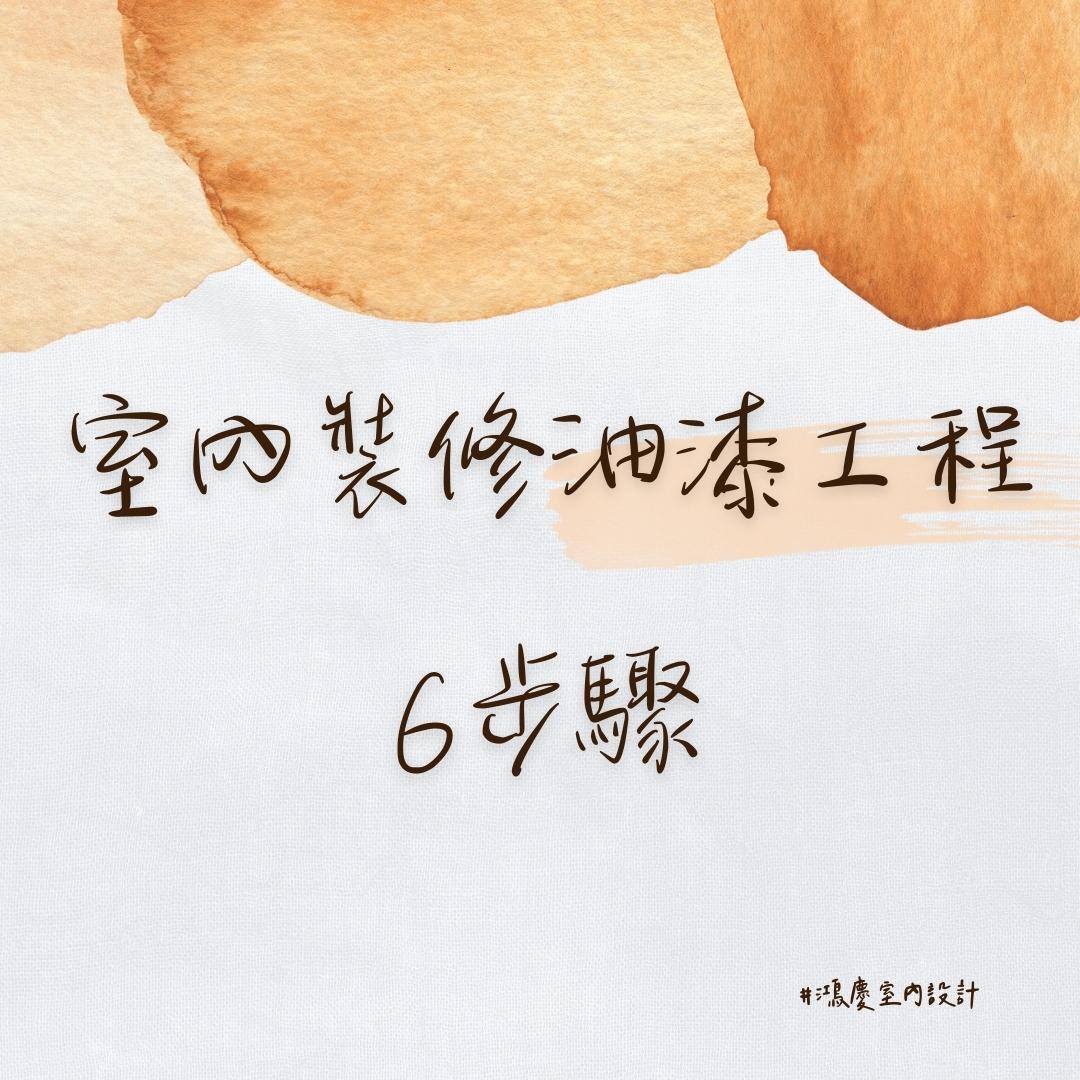 室內裝修油漆工程
6步驟
#鴻慶室內設計